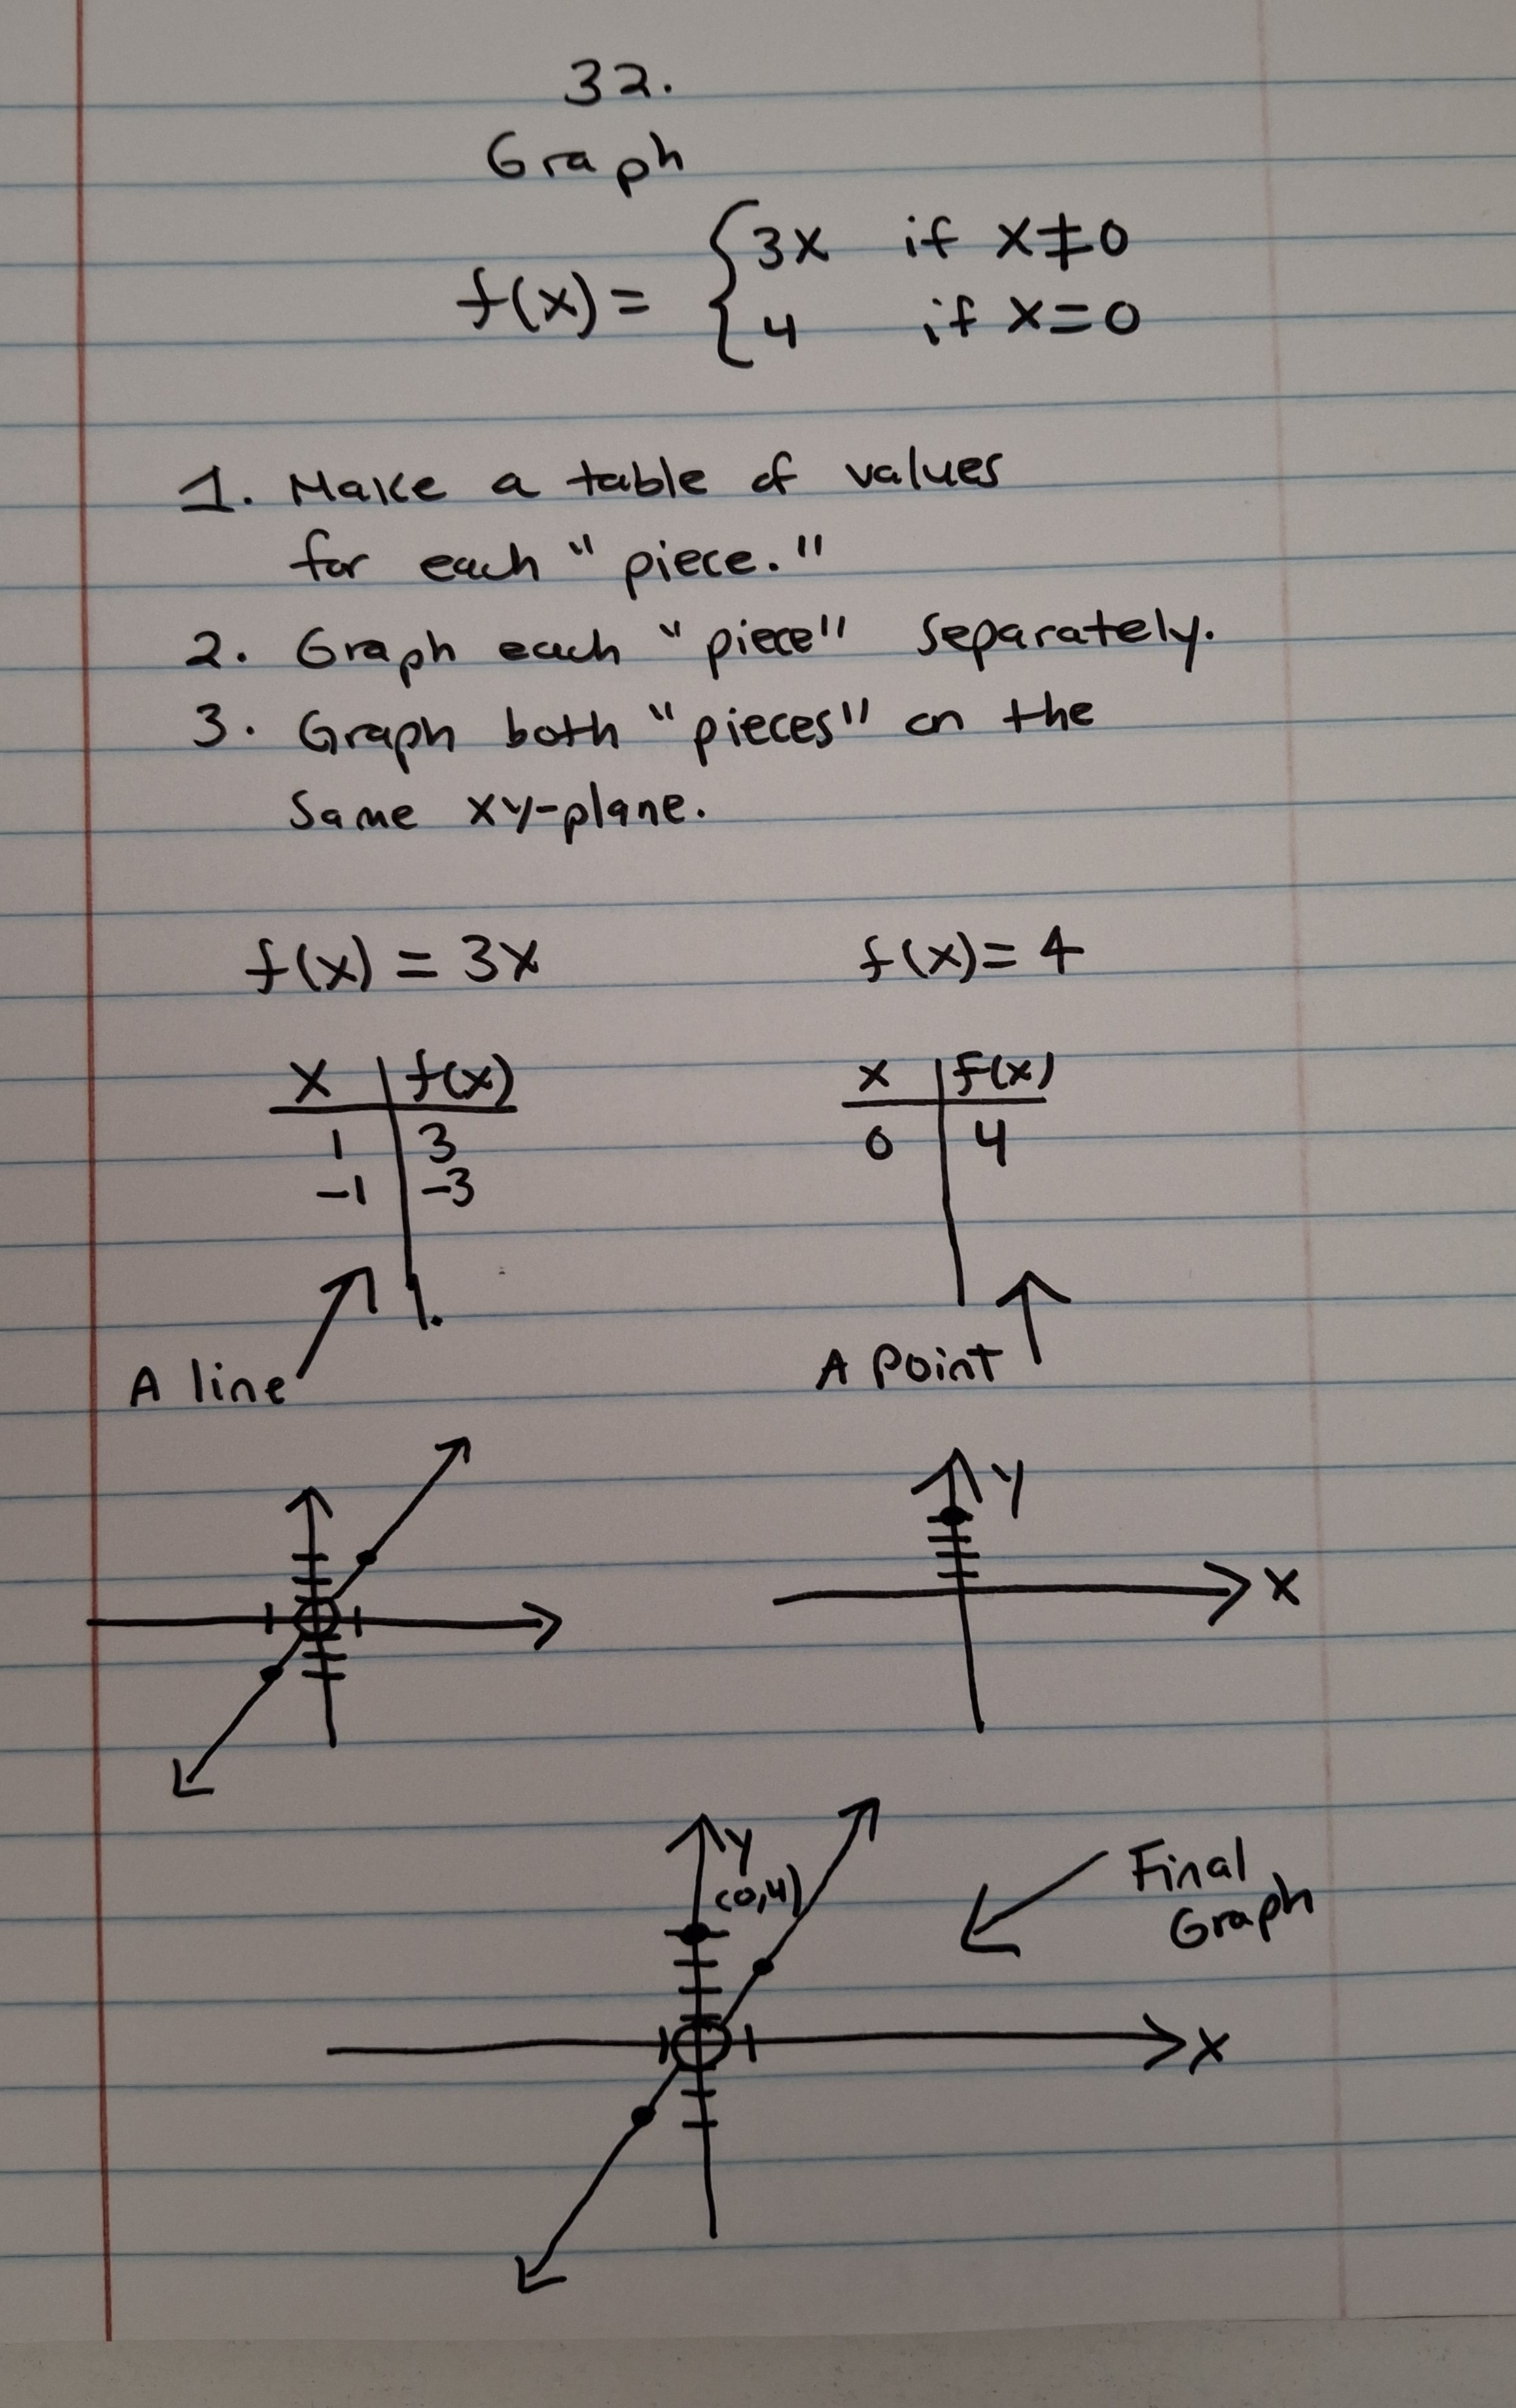 32.
Graph
f(x) = { 3x if x≠0
4 if x=0
1. Make a table of values
for each "piece."
2. Graph each "piece" separately.
3. Graph both "pieces" on the
same xy-plane.
f(x) = 3x
f(x) = 4
x | f(x)
1 | 3
-1 | -3
x | f(x)
0 | 4
A line
A point
y
x
y
(0,4)
Final
Graph
x